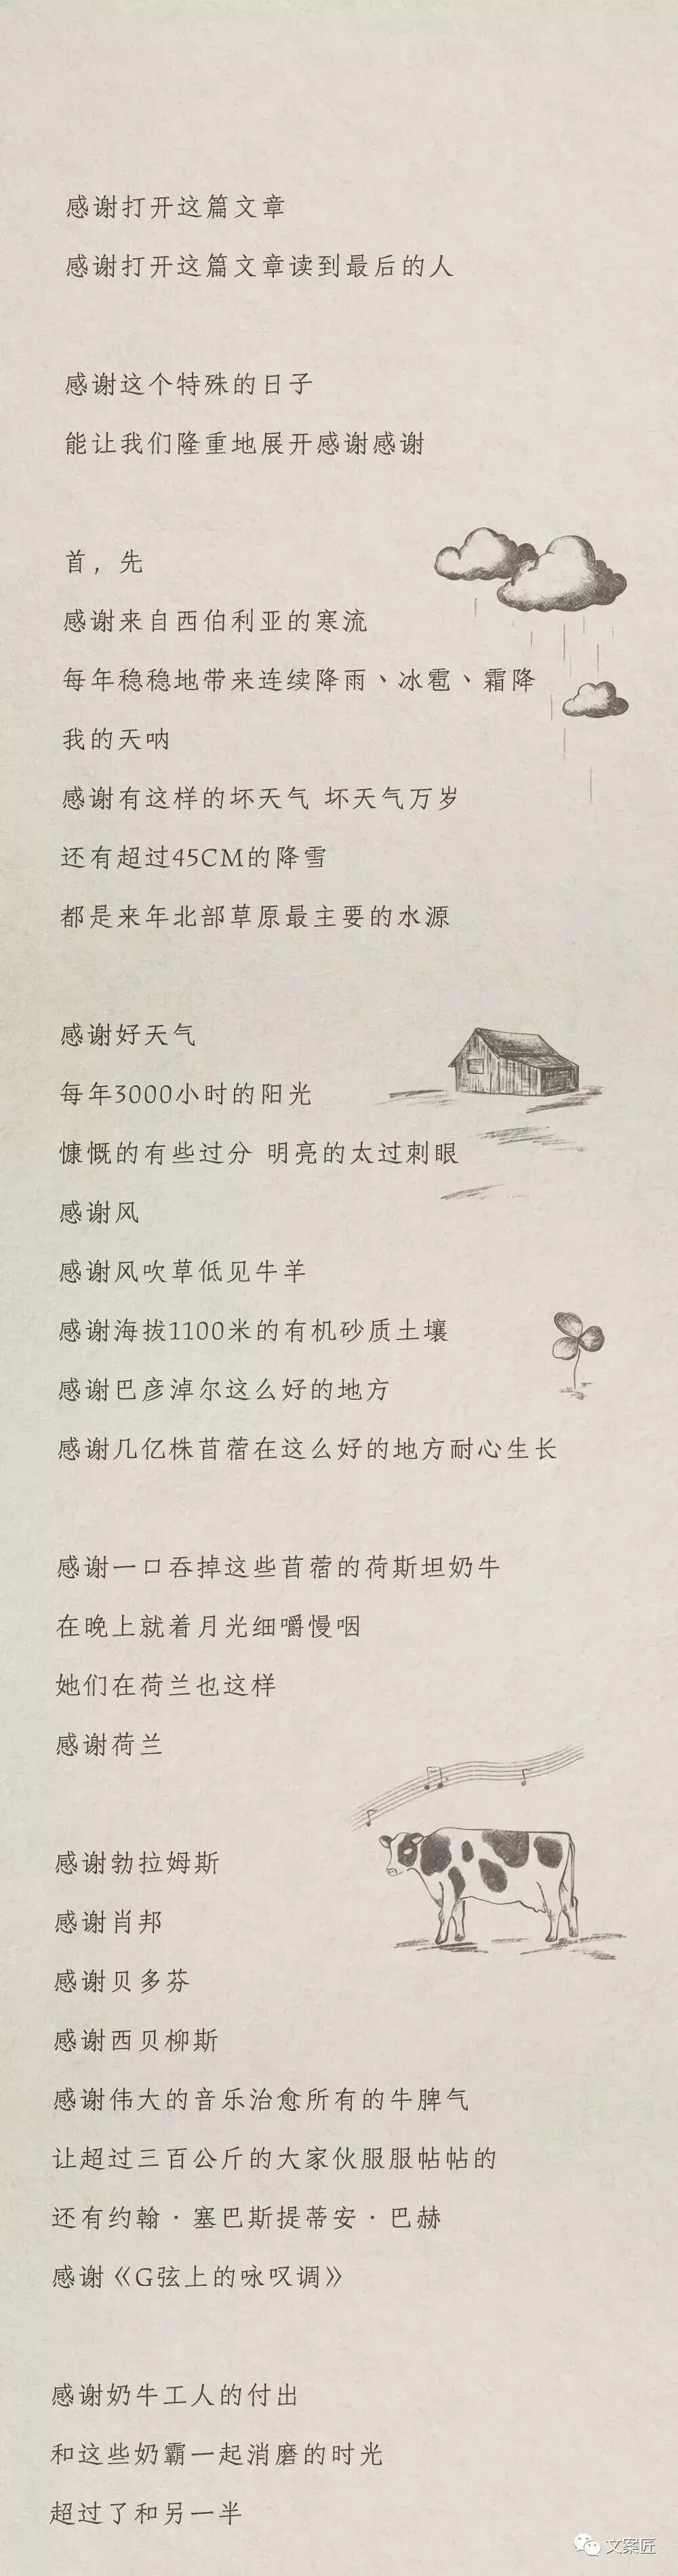 感谢打开这篇文章
感谢打开这篇文章读到最后的人
感谢这个特殊的日子
能让我们隆重地展开感谢感谢
首，先
感谢来自西伯利亚的寒流
每年稳稳地带来连续降雨、冰雹、霜降
我的天呐
感谢有这样的坏天气 坏天气万岁
还有超过45CM的降雪
都是来年北部草原最主要的水源
感谢好天气
每年3000小时的阳光
慷慨的有些过分 明亮的太过刺眼
感谢风
感谢风吹草低见牛羊
感谢海拔1100米的有机砂质土壤
感谢巴彦淖尔这么好的地方
感谢几亿株苜蓿在这么好的地方耐心生长
感谢一口吞掉这些苜蓿的荷斯坦奶牛
在晚上就着月光细嚼慢咽
她们在荷兰也这样
感谢荷兰
感谢勃拉姆斯
感谢肖邦
感谢贝多芬
感谢西贝柳斯
感谢伟大的音乐治愈所有的牛脾气
让超过三百公斤的大家伙服服帖帖的
还有约翰·塞巴斯提蒂安·巴赫
感谢《G弦上的咏叹调》
感谢奶牛工人的付出
和这些奶霸一起消磨的时光
超过了和另一半
文案匠